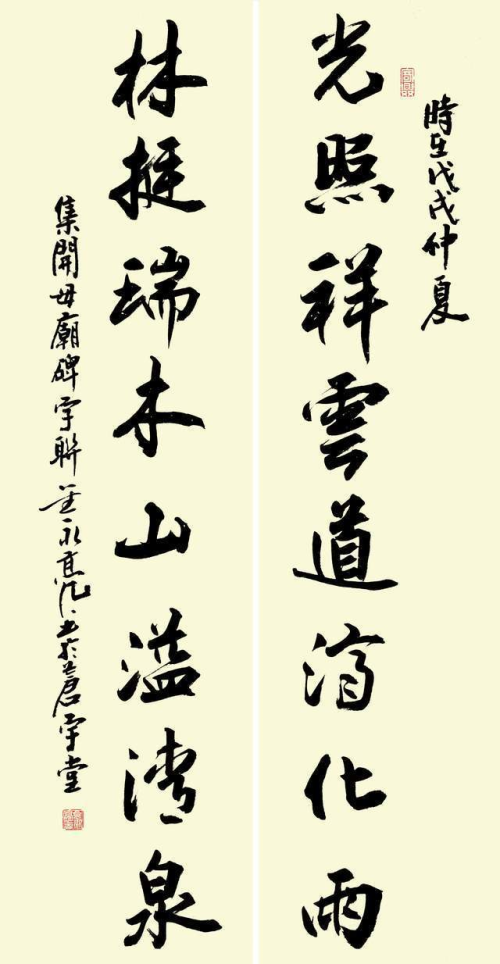 時在戊戌仲夏
光照祥雲道濟化雨
林挺瑞木山溢清泉
集開母廟碑字聯 永 書於蒼宇堂